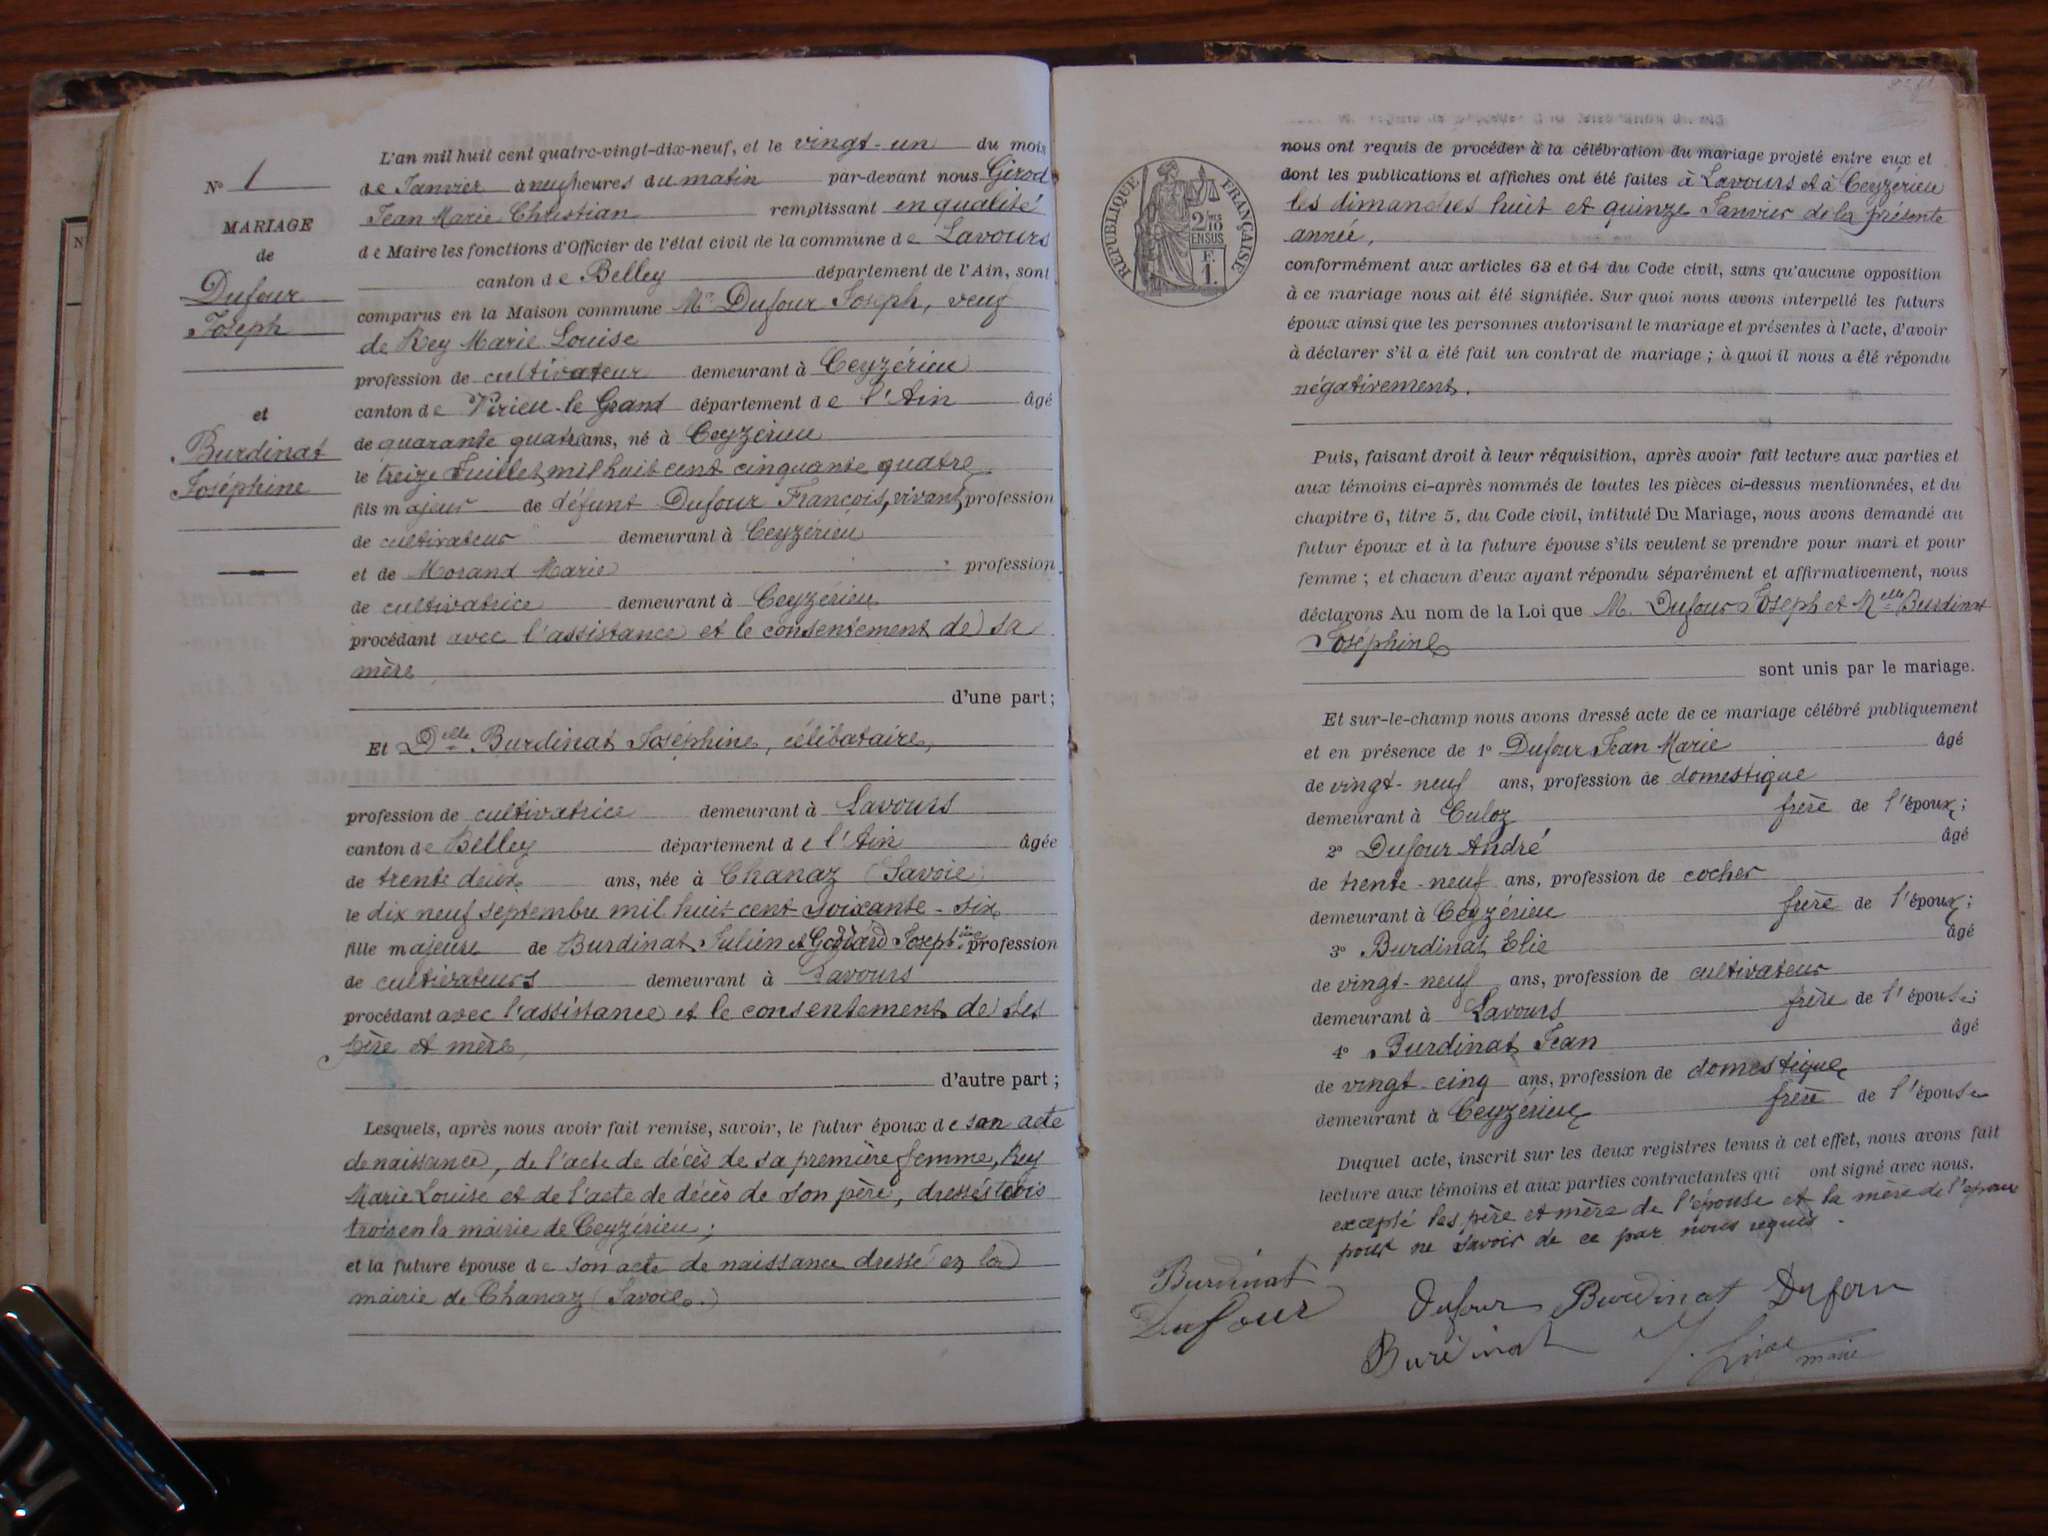 N° 1
MARIAGE
de
Dufour
Joseph
et
Burdinat
Joséphine
L'an mil huit cent quatre-vingt-dix-neuf, et le vingt-un du mois
de Janvier à neuf heures du matin par-devant nous Girod
Jean Marie Christian remplissant en qualité
de Maire les fonctions d'Officier de l'état civil de la commune de Lavours
canton de Belley département de l'Ain, sont
comparus en la Maison commune Mr Dufour Joseph, veuf
de Rey Marie Louise
profession de cultivateur demeurant à Ceyzérieu
canton de Virieu-le Grand département de l'Ain âgé
de quarante quatre ans, né à Ceyzérieu
le treize Juillet mil huit cent cinquante quatre
fils majeur de défunt Dufour François, vivant, profession
de cultivateur demeurant à Ceyzérieu
et de Morand Marie profession
de cultivatrice demeurant à Ceyzérieu
procédant avec l'assistance et le consentement de sa
mère
d'une part;
Et Delle Burdinat Joséphine, célibataire,
profession de cultivatrice demeurant à Lavours
canton de Belley département de l'Ain âgée
de trente deux ans, née à Chanaz (Savoie)
le dix neuf septembre mil huit cent soixante-six
fille majeure de Burdinat Julien et Godard Josephine profession
de cultivateurs demeurant à Lavours
procédant avec l'assistance et le consentement de ses
père et mère,
d'autre part;
Lesquels, après nous avoir fait remise, savoir, le futur époux de son acte
de naissance, de l'acte de décès de sa première femme, Rey
Marie Louise et de l'acte de décès de son père, dressés tous
trois en la mairie de Ceyzérieu;
et la future épouse de son acte de naissance dressé en la
mairie de Chanaz (Savoie.)
RÉPUBLIQUE FRANÇAISE
2/10
EN SUS
F.
1.
nous ont requis de procéder à la célébration du mariage projeté entre eux et
dont les publications et affiches ont été faites à Lavours et à Ceyzérieu
les dimanches huit et quinze Janvier de la présente
année,
conformément aux articles 63 et 64 du Code civil, sans qu'aucune opposition
à ce mariage nous ait été signifiée. Sur quoi nous avons interpellé les futurs
époux ainsi que les personnes autorisant le mariage et présentes à l'acte, d'avoir
à déclarer s'il a été fait un contrat de mariage; à quoi il nous a été répondu
négativement.
Puis, faisant droit à leur réquisition, après avoir fait lecture aux parties et
aux témoins ci-après nommés de toutes les pièces ci-dessus mentionnées, et du
chapitre 6, titre 5, du Code civil, intitulé Du Mariage, nous avons demandé au
futur époux et à la future épouse s'ils veulent se prendre pour mari et pour
femme; et chacun d'eux ayant répondu séparément et affirmativement, nous
déclarons Au nom de la Loi que M. Dufour Joseph et Melle Burdinat
Joséphine
sont unis par le mariage.
Et sur-le-champ nous avons dressé acte de ce mariage célébré publiquement
et en présence de 1° Dufour Jean Marie âgé
de vingt-neuf ans, profession de domestique
demeurant à Culoz frère de l'époux;
2° Dufour André âgé
de trente-neuf ans, profession de cocher
demeurant à Ceyzérieu frère de l'époux;
3° Burdinat Elie âgé
de vingt-neuf ans, profession de cultivateur
demeurant à Lavours frère de l'épouse;
4° Burdinat Jean âgé
de vingt-cinq ans, profession de domestique
demeurant à Ceyzérieu frère de l'épouse
Duquel acte, inscrit sur les deux registres tenus à cet effet, nous avons fait
lecture aux témoins et aux parties contractantes qui ont signé avec nous.
excepté les père et mère de l'épouse et la mère de l'époux
pour ne savoir de ce par nous requis.
Burdinat
Dufour
Dufour Burdinat Dufour
Burdinat
maire